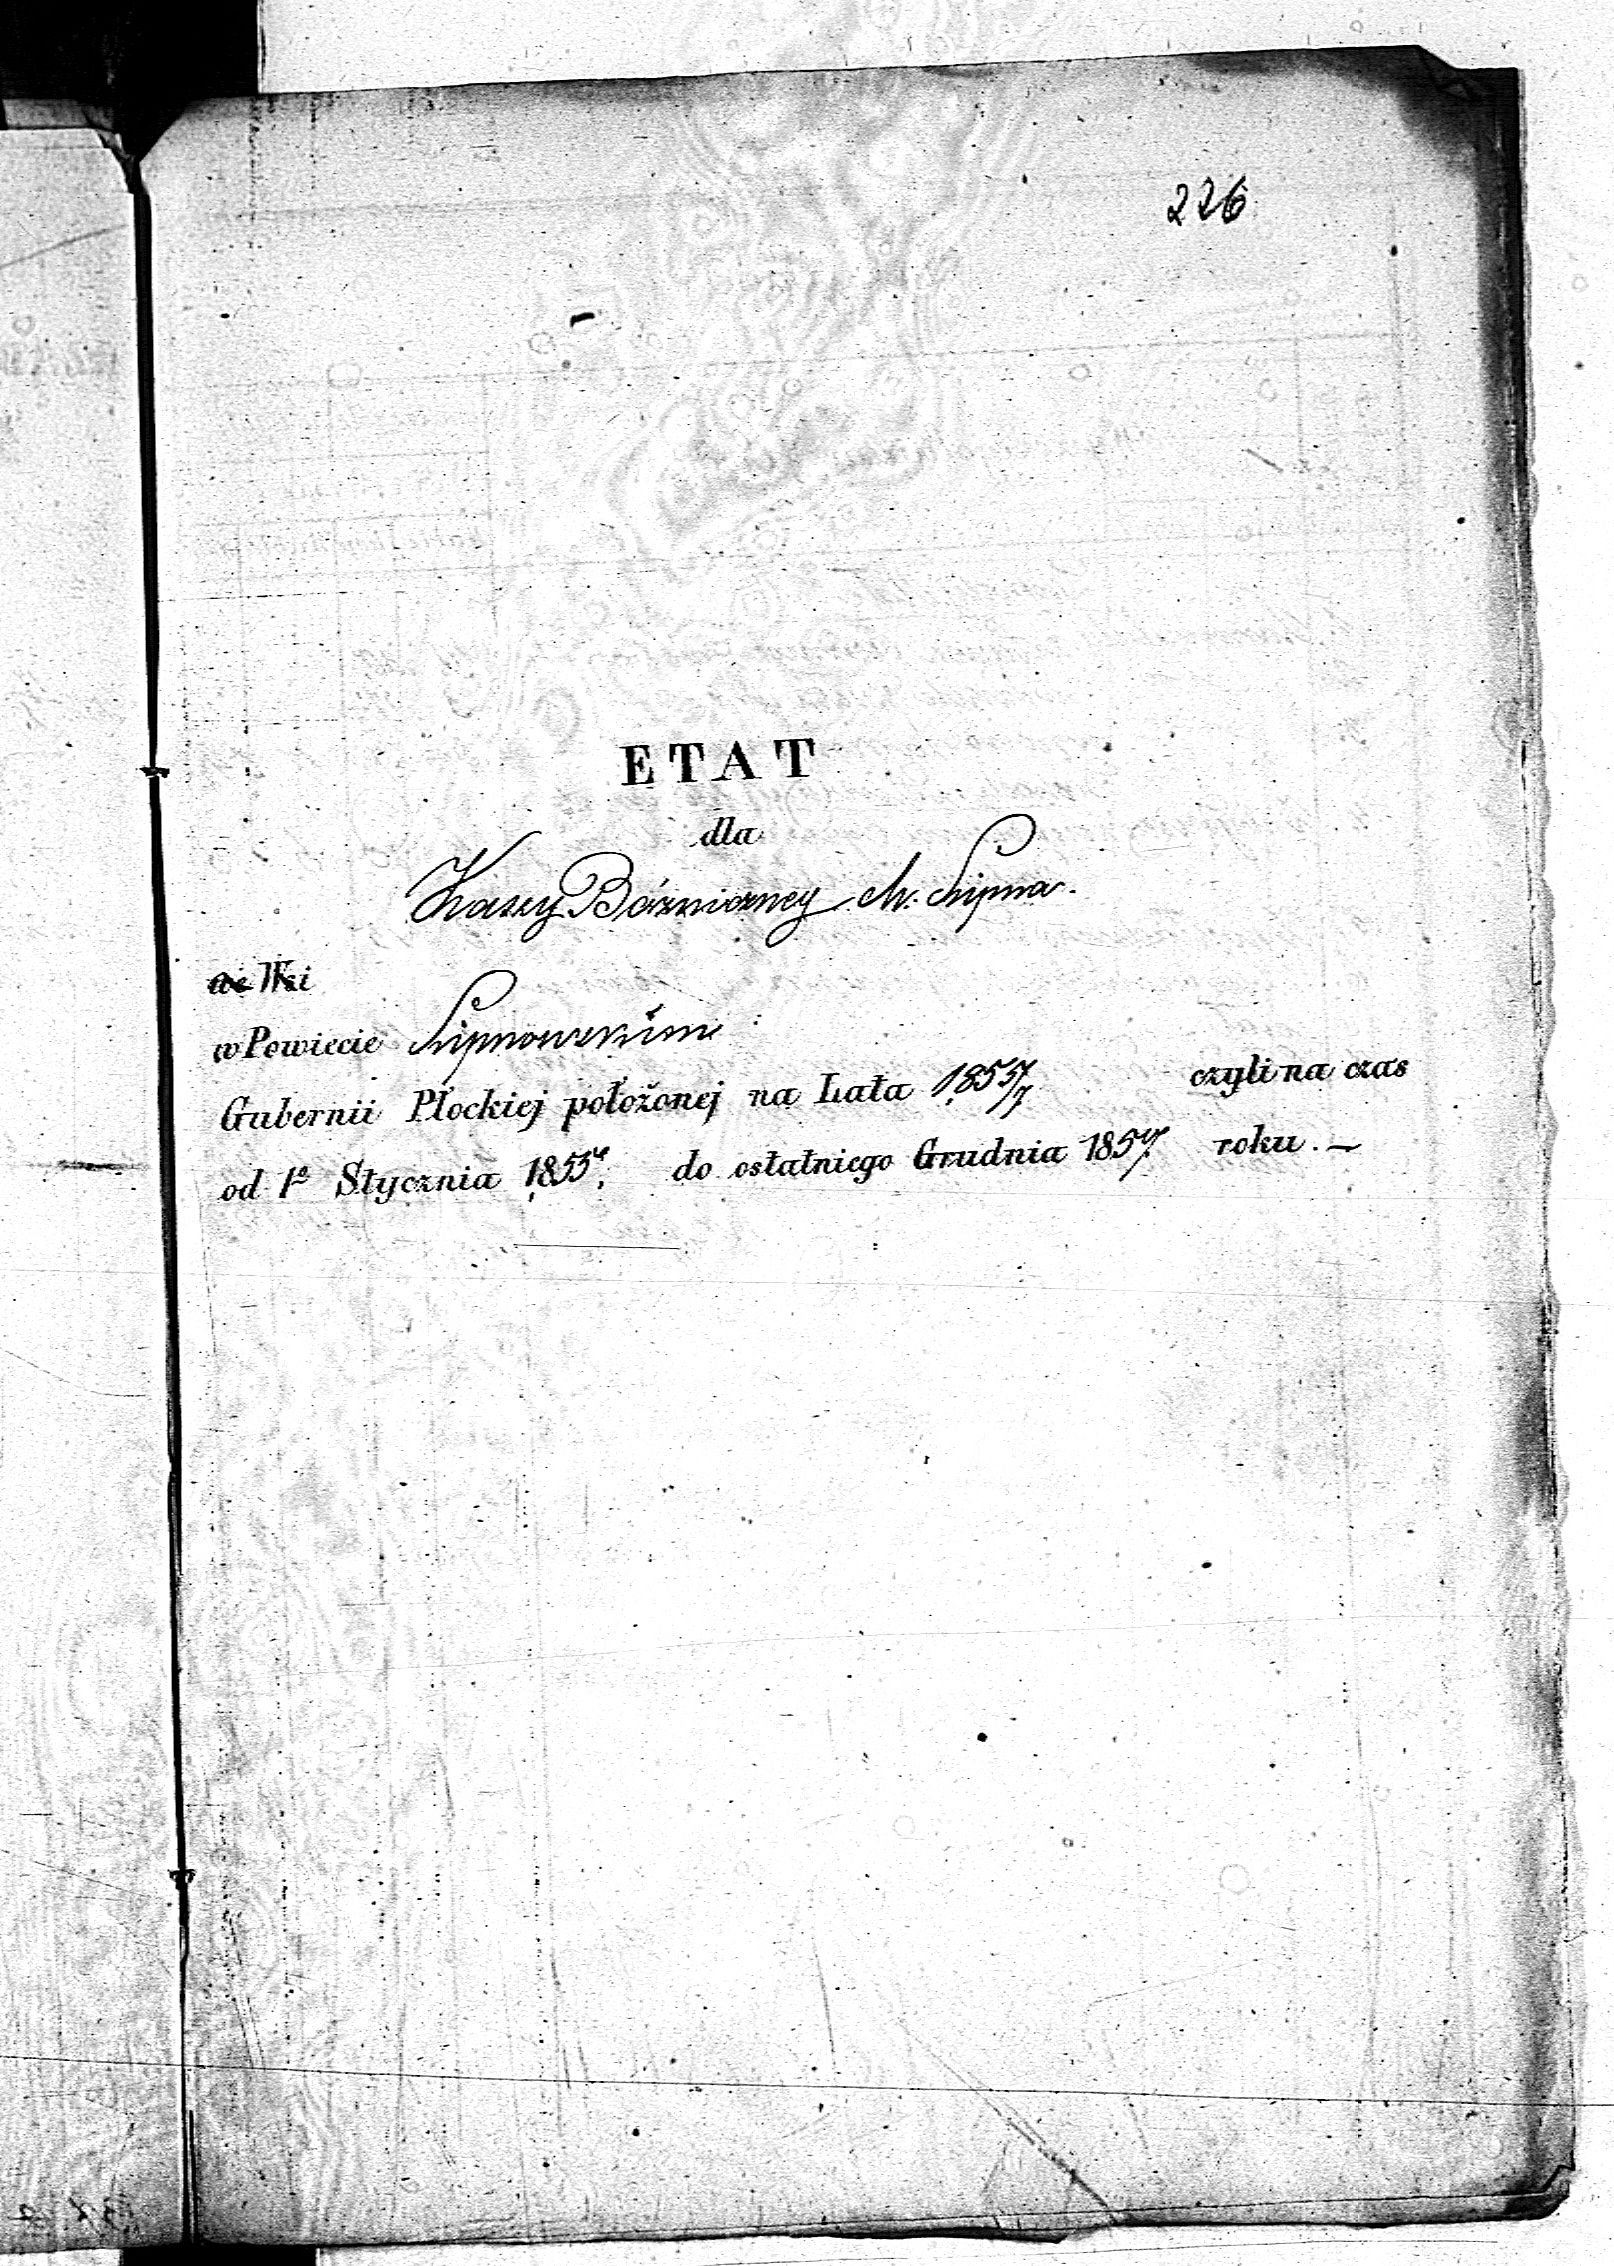 226
ETAT
dla
Kassy Bóżniczney M. Lipna.
we Wsi
w Powiecie Lipnowskim
Gubernii Płockiej położonej na Lata 1855/7 czyli na czas
od 1º Stycznia 1855º do ostatniego Grudnia 1857 roku.